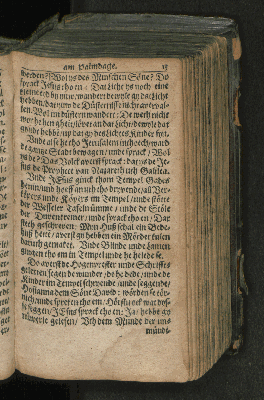 am Palmdage. 15
werden? Wol ys des Minschen Söne? Do
sprack Jesus tho en: Dat Licht ys noch eine
kleine tydt by juw, wandert dewyle gy dat Licht
hebben, dat juw de Düsternisse nicht avervalle.
Wol im düstern wandert: De weth nicht
wor he hen gheit, löuet an dat Licht, dewyle dat
gy idt hebbe, up dat gy des Lichtes Kinder sin.
Unde alse he tho Jerusalem in thoch, wardt
de gantze Stadt bewagen, unde sprack, Wol
ys de? Dat Volck averst sprack: dat ys de Jesus
de Prophete van Nazareth uth Galilea.
Unde Jesus ginck thom Tempel Gades
henin, unde dreeff
unde Köpers im Tempel, unde stötte
der Wesseler Tafeln ümme, unde de Stöle
der Duvenkremer, unde sprack tho en: Dar
steit geschreven: Myn Huß schal ein Bedehuß
heten, averst gy hebben ein Mörder kulen
daruth gemaket. Unde Blinde unde Lamen
gingen tho em im Tempel unde he helede se.
Do averst de Hogenprester unde Schrifftgelerten
segen de wunder, de he dede, unde de
Kinder im Tempel schryende, unde seggende,
Hosianna dem Söne David: wörden se törnich,
unde spreken tho em: Hörstu ock wat desse
seggen? Jesus sprack tho en: Ja, hebbe gy
nüwerle gelesen, Uth dem Munde der unmündi-